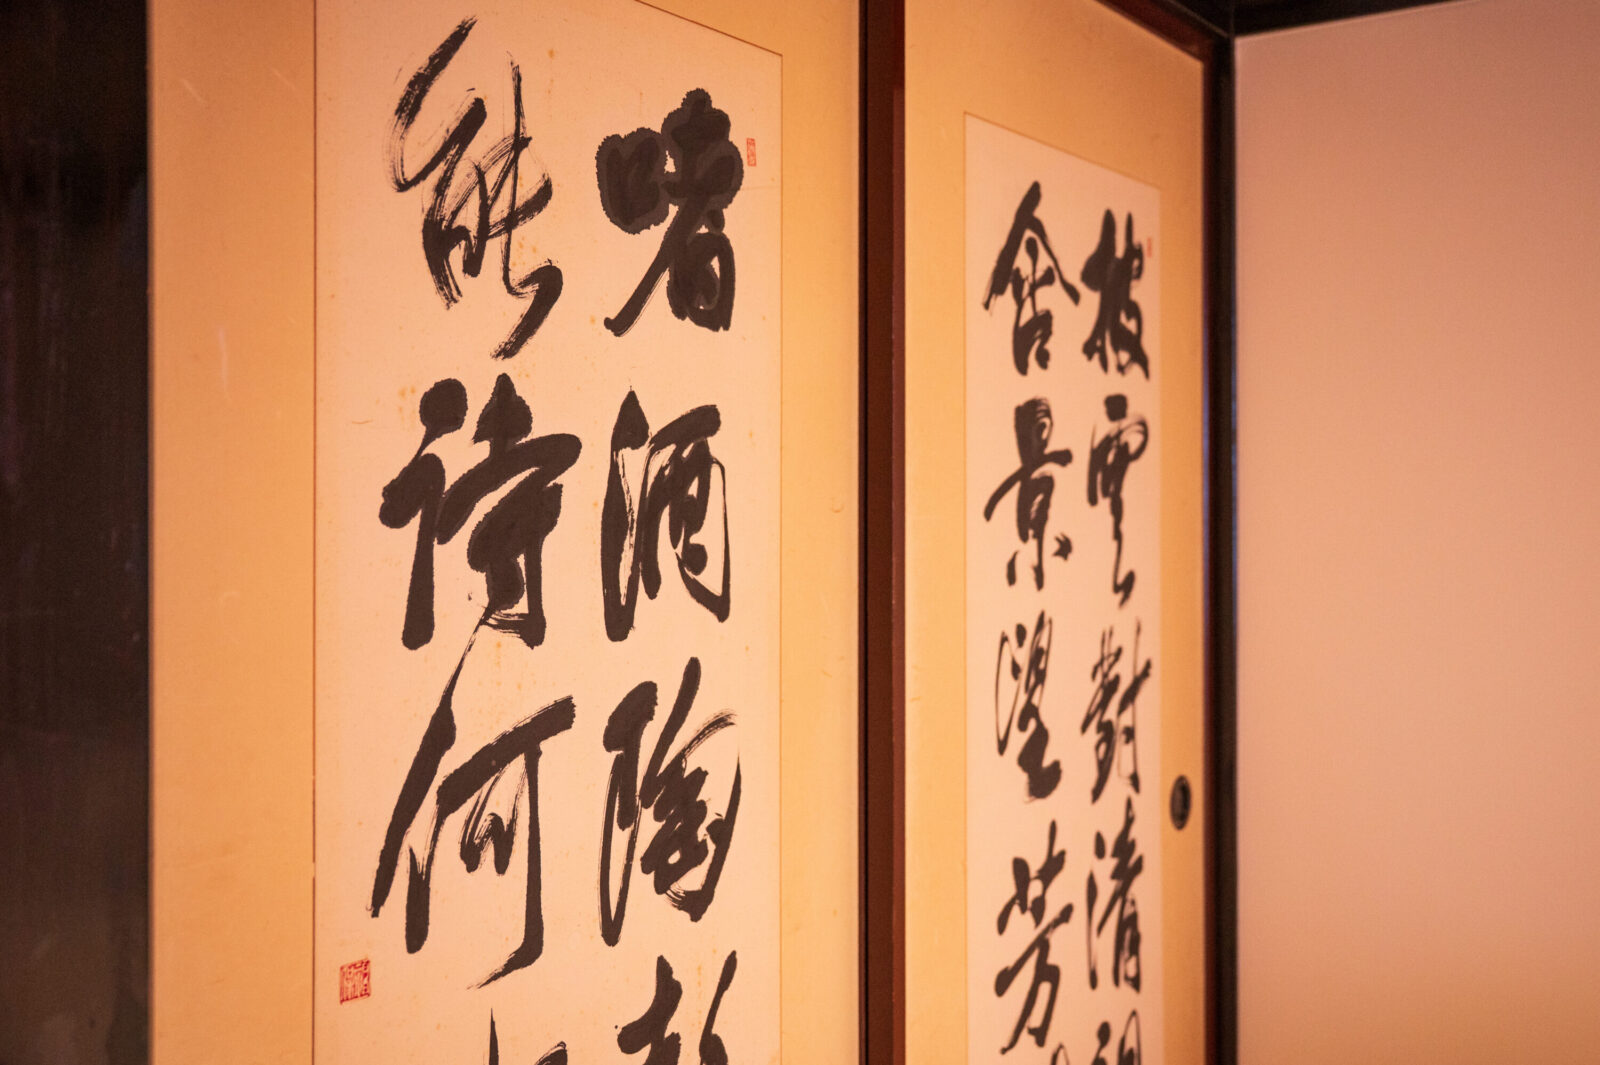 披雲對清
含景望芳
嗜酒陶
能詩何